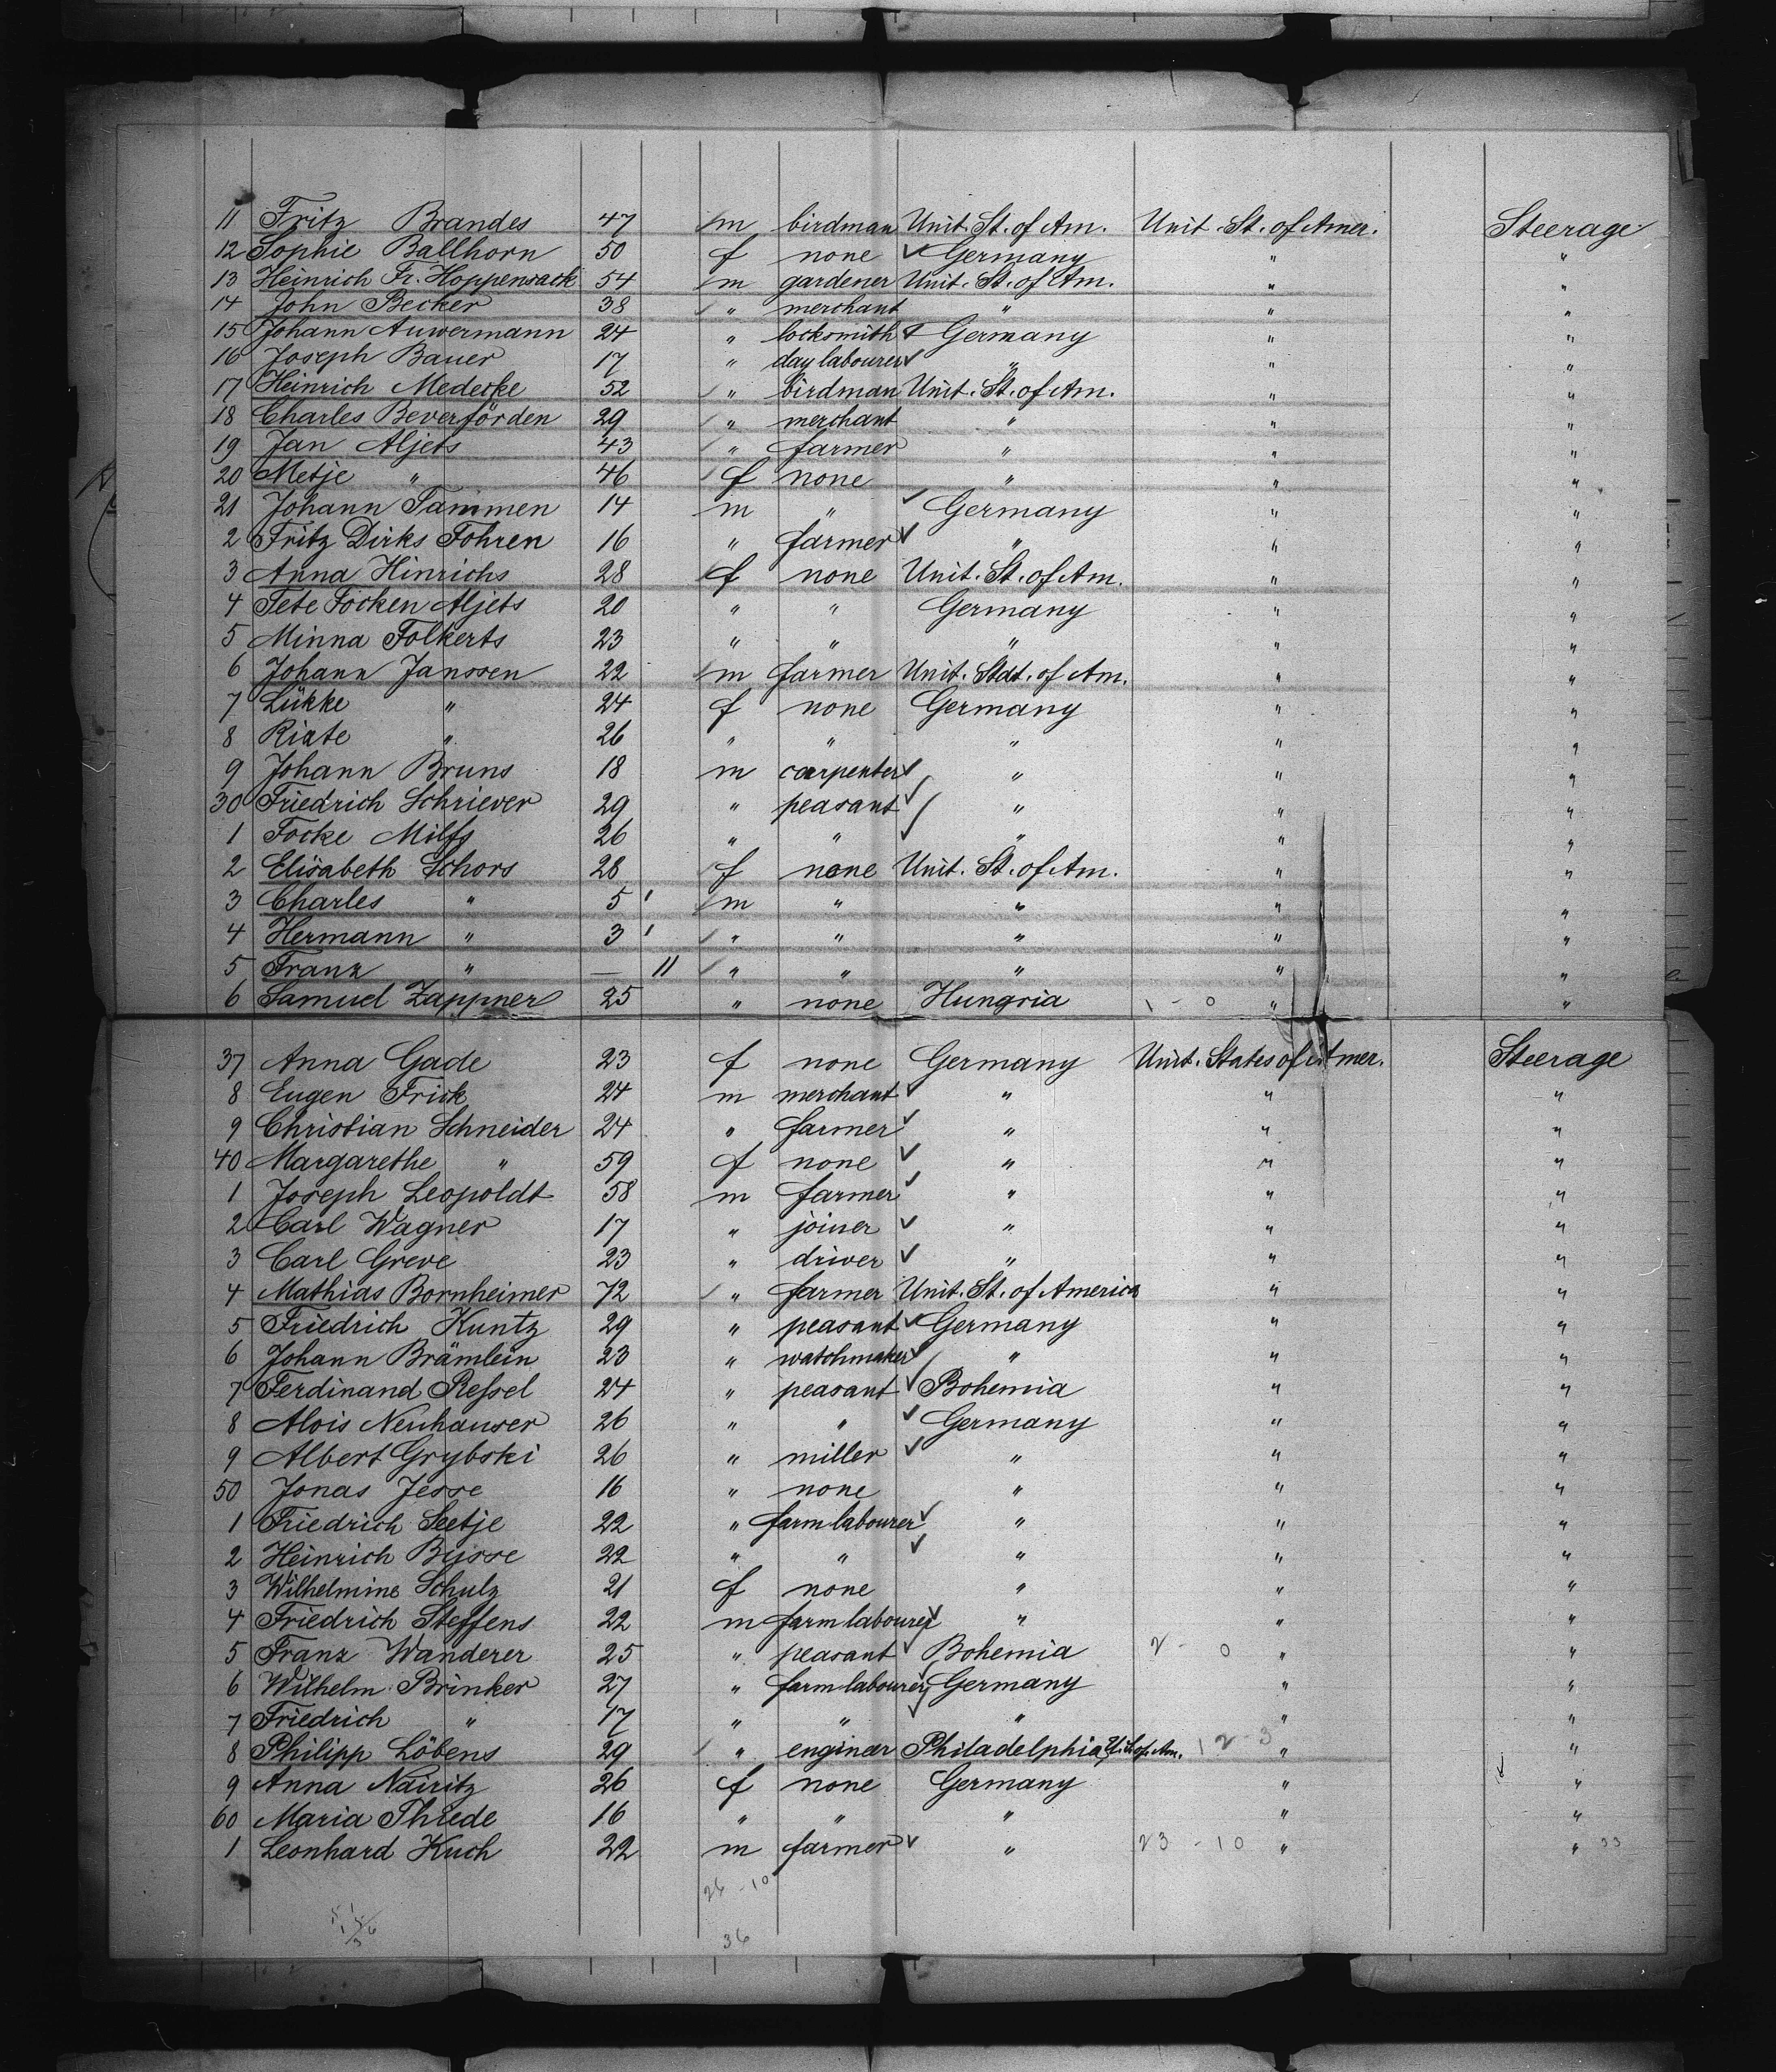 11 Fritz Brandes 47 m birdman Unit. St. of Am. Unit. St. of Amer. Steerage
12 Sophie Ballhorn 50 f none Germany " "
13 Heinrich Fr. Hoppensack 54 m gardener Unit. St. of Am. " "
14 John Becker 38 " merchant " " "
15 Johann Auwermann 24 " locksmith Germany " "
16 Joseph Bauer 17 " day labourer " " "
17 Heinrich Medecke 52 " birdman Unit. St. of Am. " "
18 Charles Beverförden 29 " merchant " " "
19 Jan Aljets 43 " farmer " " "
20 Metje " 46 f none " " "
21 Johann Tammen 14 m " Germany " "
2 Fritz Dirks Fohren 16 " farmer " " "
3 Anna Hinrichs 28 f none Unit. St. of Am. " "
4 Tete Focken Aljets 20 " " Germany " "
5 Minna Folkerts 23 " " " " "
6 Johann Janssen 22 m farmer Unit. Stat. of Am. " "
7 Lükke " 24 f none Germany " "
8 Riate " 26 " " " " "
9 Johann Bruns 18 m carpenter " " "
30 Friedrich Schriever 29 " peasant " " "
1 Focke Milfs 26 " " " " "
2 Elisabeth Schors 28 f none Unit. St. of Am. " "
3 Charles " 5 m " " " "
4 Hermann " 3 " " " " "
5 Franz " — 11 " " " " "
6 Samuel Zappner 25 " none Hungria 1 - 0 " "
37 Anna Gade 23 f none Germany Unit. States of Amer. Steerage
8 Eugen Frick 24 m merchant " " "
9 Christian Schneider 24 " farmer " " "
40 Margarethe " 59 f none " " "
1 Joseph Leopoldt 58 m farmer " " "
2 Carl Wagner 17 " joiner " " "
3 Carl Greve 23 " driver " " "
4 Mathias Bornheimer 72 " farmer Unit. St. of America " "
5 Friedrich Kuntz 29 " peasant Germany " "
6 Johann Brämlein 23 " watchmaker " " "
7 Ferdinand Ressel 24 " peasant Bohemia " "
8 Alois Neuhauser 26 " " Germany " "
9 Albert Grybski 26 " miller " " "
50 Jonas Jesse 16 " none " " "
1 Friedrich Seetje 22 " farm labourer " " "
2 Heinrich Busse 22 " " " " "
3 Wilhelmine Schulz 21 f none " " "
4 Friedrich Steffens 22 m farm labourer " " "
5 Franz Wanderer 25 " peasant Bohemia 2 - 0 " "
6 Wilhelm Brinker 27 " farm labourer Germany " "
7 Friedrich " 17 " " " " "
8 Philipp Löbens 29 " engineer Philadelphia U. St. of Am. 12-3 " "
9 Anna Nairitz 26 f none Germany " "
60 Maria Thiede 16 " " " " "
1 Leonhard Kuch 22 m farmer " 23 - 10 " " 33
26 - 10
36